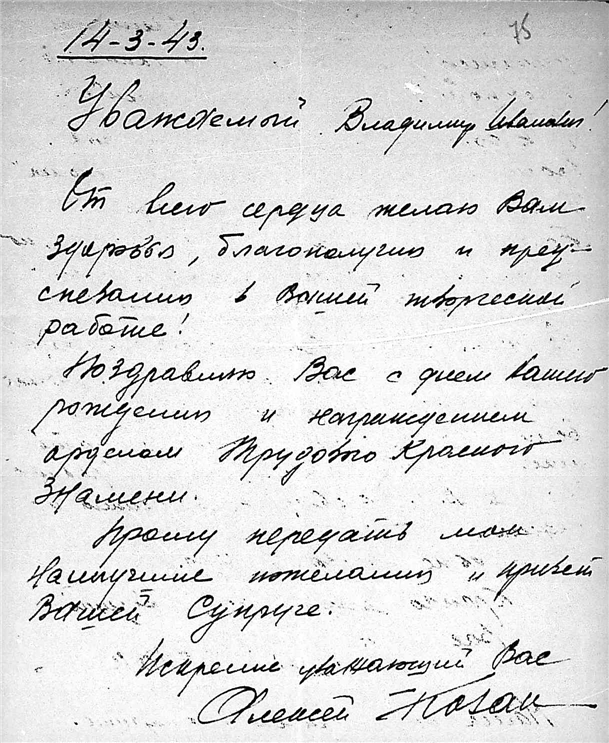 75
14-3-43.
Уважаемый Владимир Иванович!
От всего сердца желаю Вам
здоровья, благополучия и преу-
спевания в Вашей творческой
работе!
Поздравляю Вас с днем Вашего
рождения и награждением
орденом Трудового Красного
Знамени.
Прошу передать мои
наилучшие пожелания и привет
Вашей Супруге.
Искренне уважающий Вас
Алексей